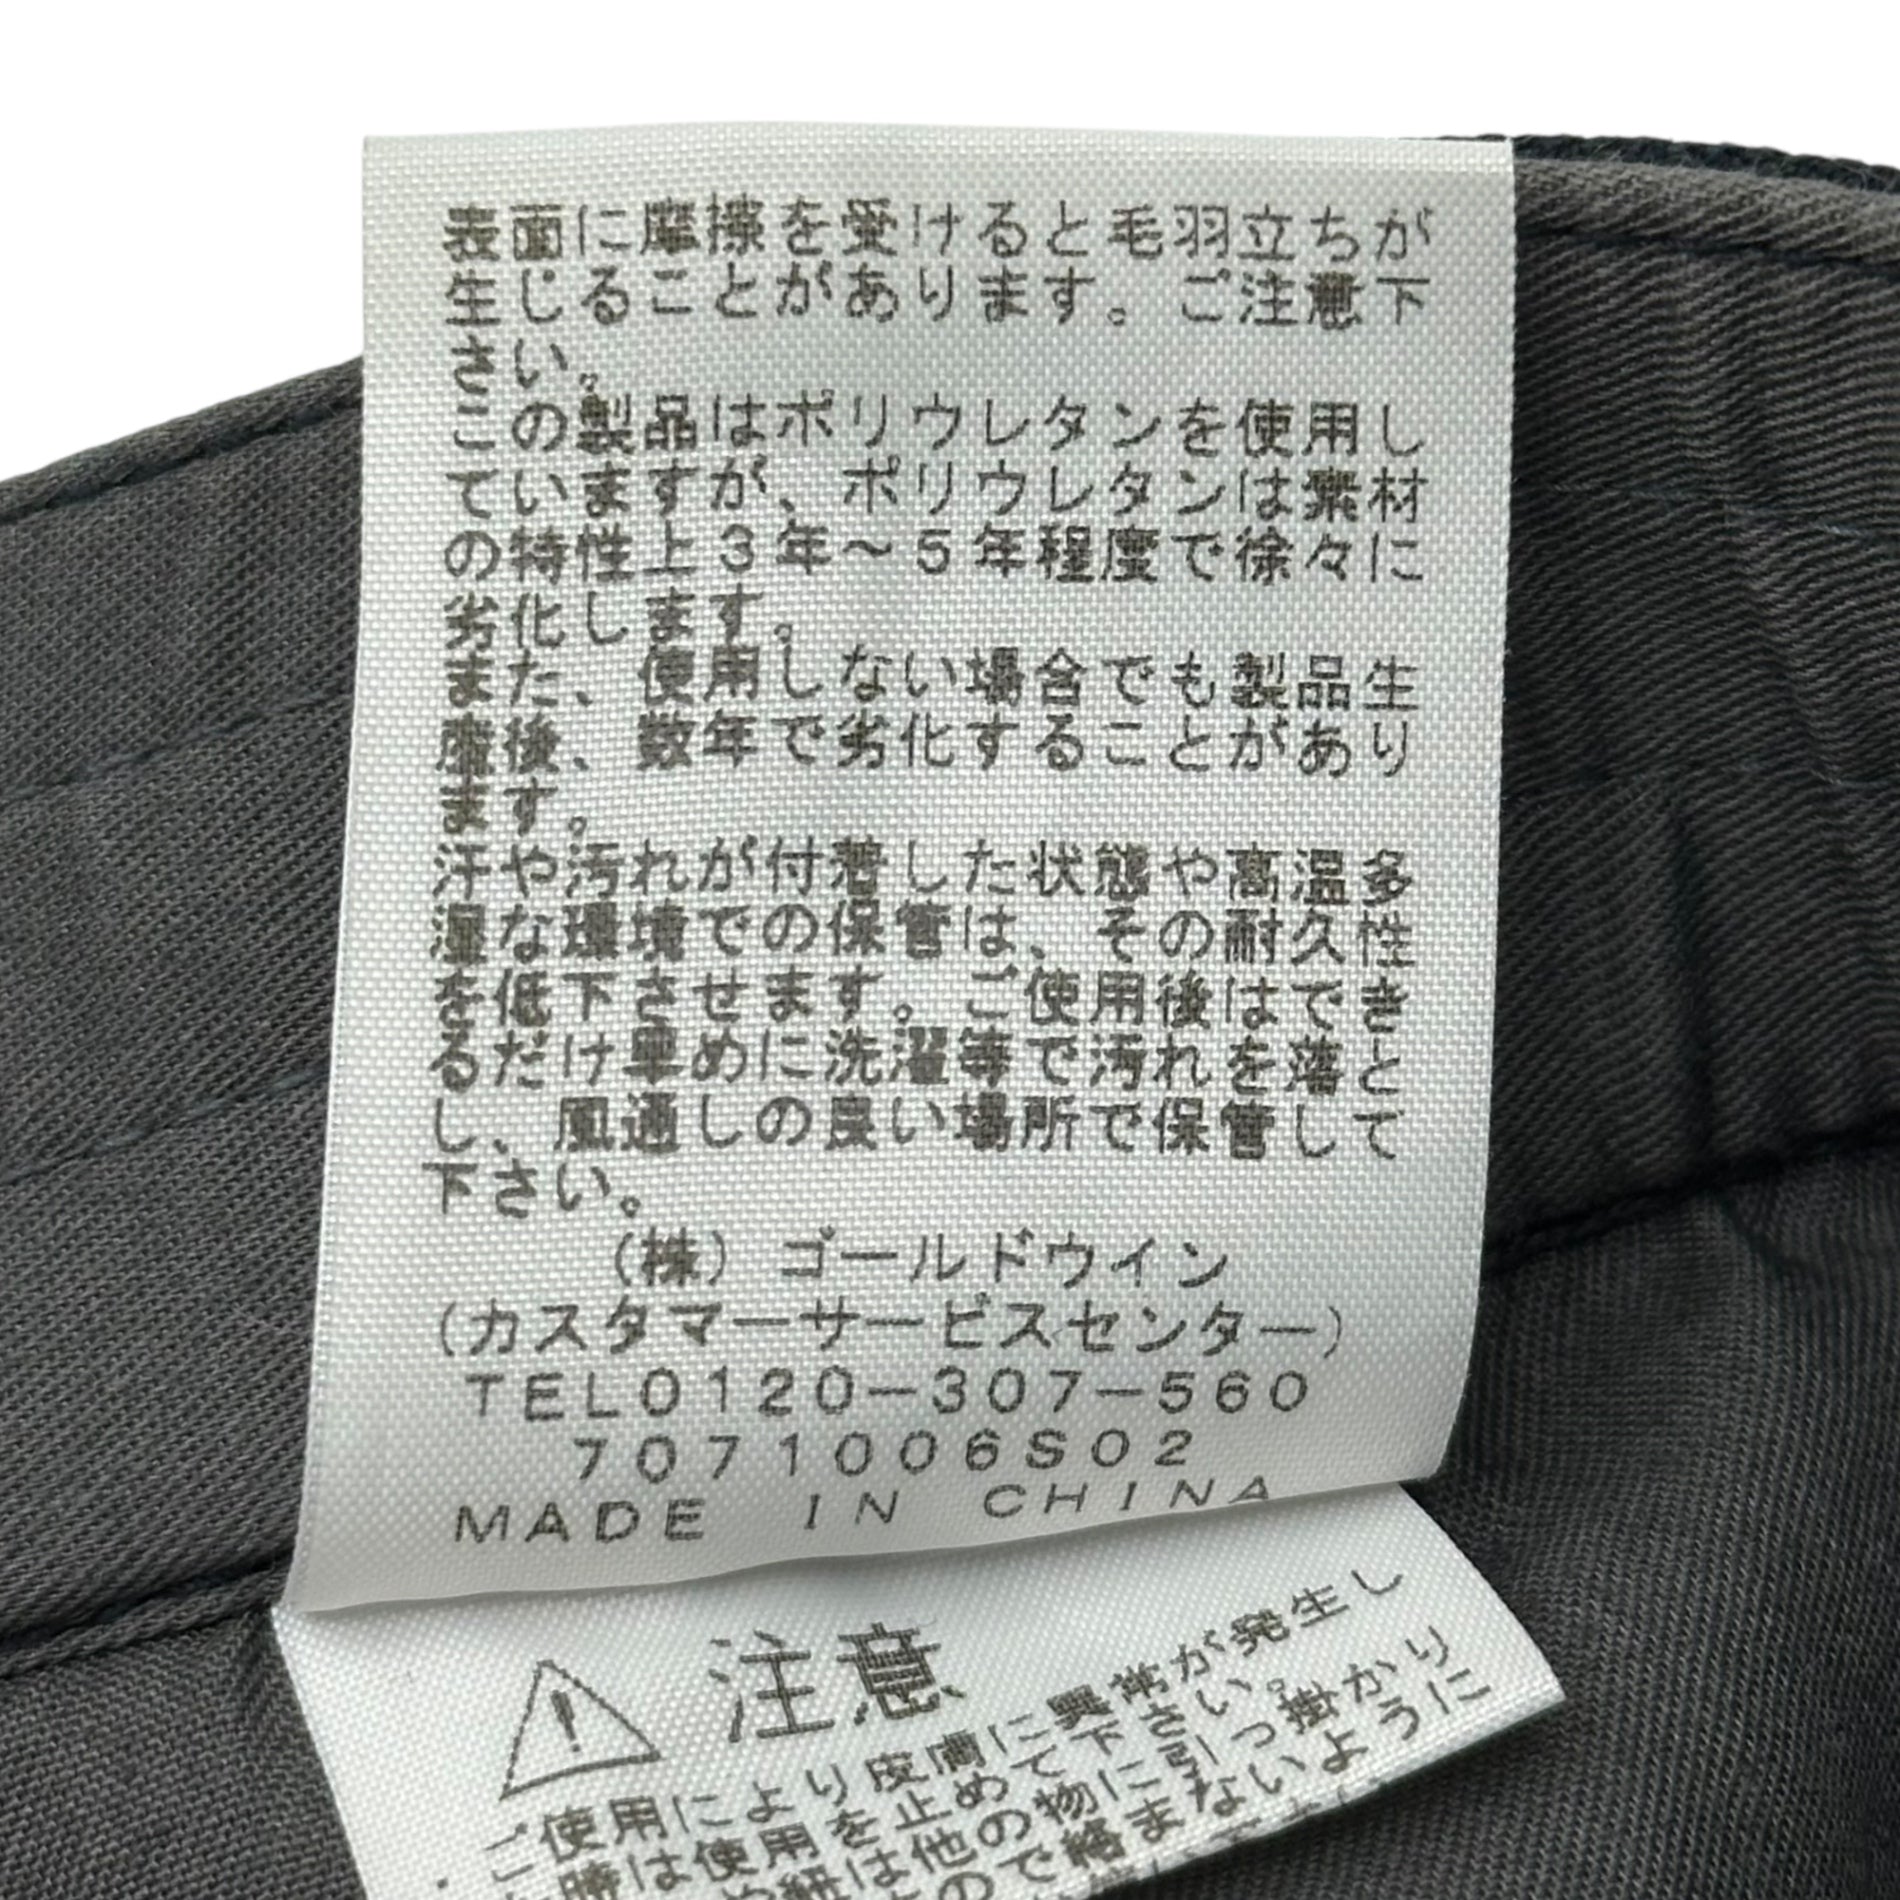 表面に摩擦を受けると毛羽立ちが
生じることがあります。ご注意下
さい。
この製品はポリウレタンを使用し
ていますが、ポリウレタンは素材
の特性上3年〜5年程度で徐々に
劣化します。
また、使用しない場合でも製品生
産後、数年で劣化することがあり
ます。
汗や汚れが付着した状態や高温多
湿な環境での保管は、その耐久性
を低下させます。ご使用後はでき
るだけ早めに洗濯等で汚れを落と
し、風通しの良い場所で保管して
下さい。
(株)ゴールドウイン
(カスタマーサービスセンター)
TEL0120-307-560
7071006S02
MADE IN CHINA
注意
ご使用により皮膚に異常が発生し
時は使用を止めて下さい。
紐は他の物に引っ掛かり
ので絡まないように